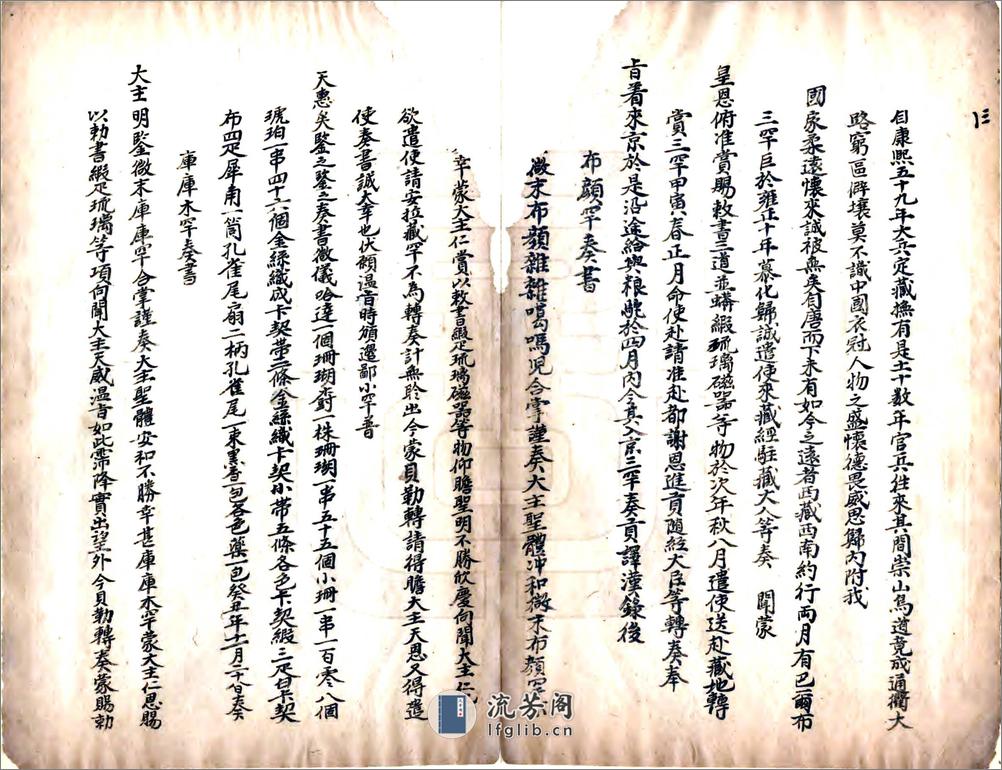 自康熙五十九年大兵定藏撫有是土十數年官兵往來其間崇山鳥道竟成通衢大
路窮區僻壤莫不識中國衣冠人物之盛懷德畏威思歸內附我
國家柔遠懷來誠被無矣自唐而下未有如今之遠者西藏西南約行兩月有巴爾布
三罕巨於雍正十年慕化歸誠遣使來藏經駐藏大人等奏 聞蒙
皇恩俯准賞賜敕書三道並蟒緞琉璃磁器等物於次年秋八月遣使送赴藏地轉
賞三罕甲寅春正月命使赴請准赴都謝恩進貢隨經大臣等轉奏奉
旨着來京於是沿途給與根於四月內令其入京三罕奏貢譯漢錄後
布顏罕奏書
微末布顏雜雜噶嗎兒合掌謹奏大主聖體冲和微末布顏罕
幸蒙大主仁賞以敕書緞疋琉璃磁器等物仰瞻聖明不勝欣慶向聞大主仁
欲遣使請安拉藏罕不為轉奏計無聆出今蒙貝勒轉請得瞻大主天恩又得進
使奏書誠大幸也伏願溫音時頒邊鄙小罕普
天惠矣鑒之鑒之奏書微儀哈達一個珊瑚樹一株珊瑚一串五十五個小珊一串一百零八個
琥珀一串四十六個金絲織成卡契帶二條金絲織卡契小帶五條各色卡契緞三疋白卡契
布四疋犀角一箇孔雀尾扇二柄孔雀尾一束黑香一包各色藥一包癸丑年十一月二十八日奏
庫庫木罕奏書
大主明鑒微末庫庫罕合掌謹奏大主聖體安和不勝幸甚庫庫木罕蒙大主仁恩賜
以勅書緞疋琉璃等項向聞大主天威溫旨如此霈降實出望外今貝勒轉奏蒙賜勅
流芬阁
lfglib.cn